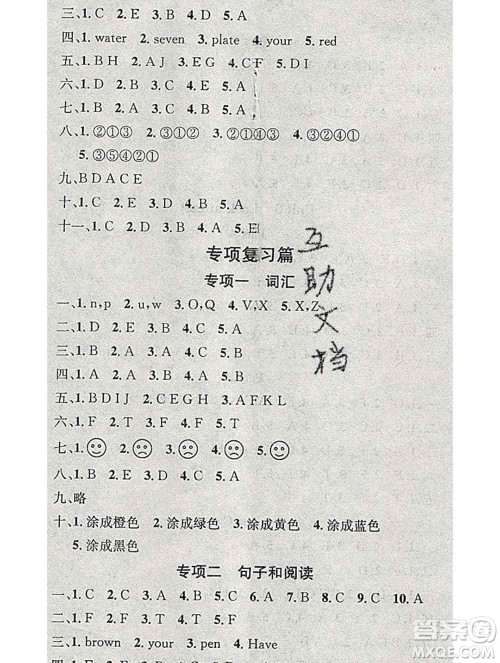 三、1. C 2. B 3. C 4. D 5. A
四、1. water 2. seven 3. plate 4. your 5. red
五、1. B H 2. A J 3. E G 4. C F 5. D I
六、1. D 2. B 3. C 4. E 5. A
七、1. B 2. A 3. C 4. C 5. A
八、1. ②①③ 2. ③①② 3. ②①④③ 4. ①③②
5. ③⑤④②①
九、B D A C E
十、1. C 2. E 3. D 4. B 5. A
十一、1. C 2. D 3. B 4. A 5. E
专项复习篇
专项一 词汇
一、1. n,p 2. u,w 3. O,Q 4. V,X 5. X,Z
二、1. C 2. D 3. E 4. B 5. A
三、1. B 2. A 3. B 4. A 5. A
四、1. A 2. A 3. B 4. A 5. B
五、1. BDIJ 2. CEGH 3. AFKL
六、1. F 2. F 3. T 4. F 5. T
七、1. 2. 3. 4. 5.
八、1. B 2. E 3. D 4. C 5. A
九、略
十、1. 涂成橙色 2. 涂成绿色 3. 涂成黄色 4. 涂成红色
5. 涂成黑色
专项二 句子和阅读
一、1. C 2. A 3. C 4. B 5. A 6. B 7. C 8. B 9. C 10. A
二、1. F 2. F 3. T 4. T 5. T
三、1. brown 2. your 3. pen 4. Have
互助文档
作业帮
MXQE.COM